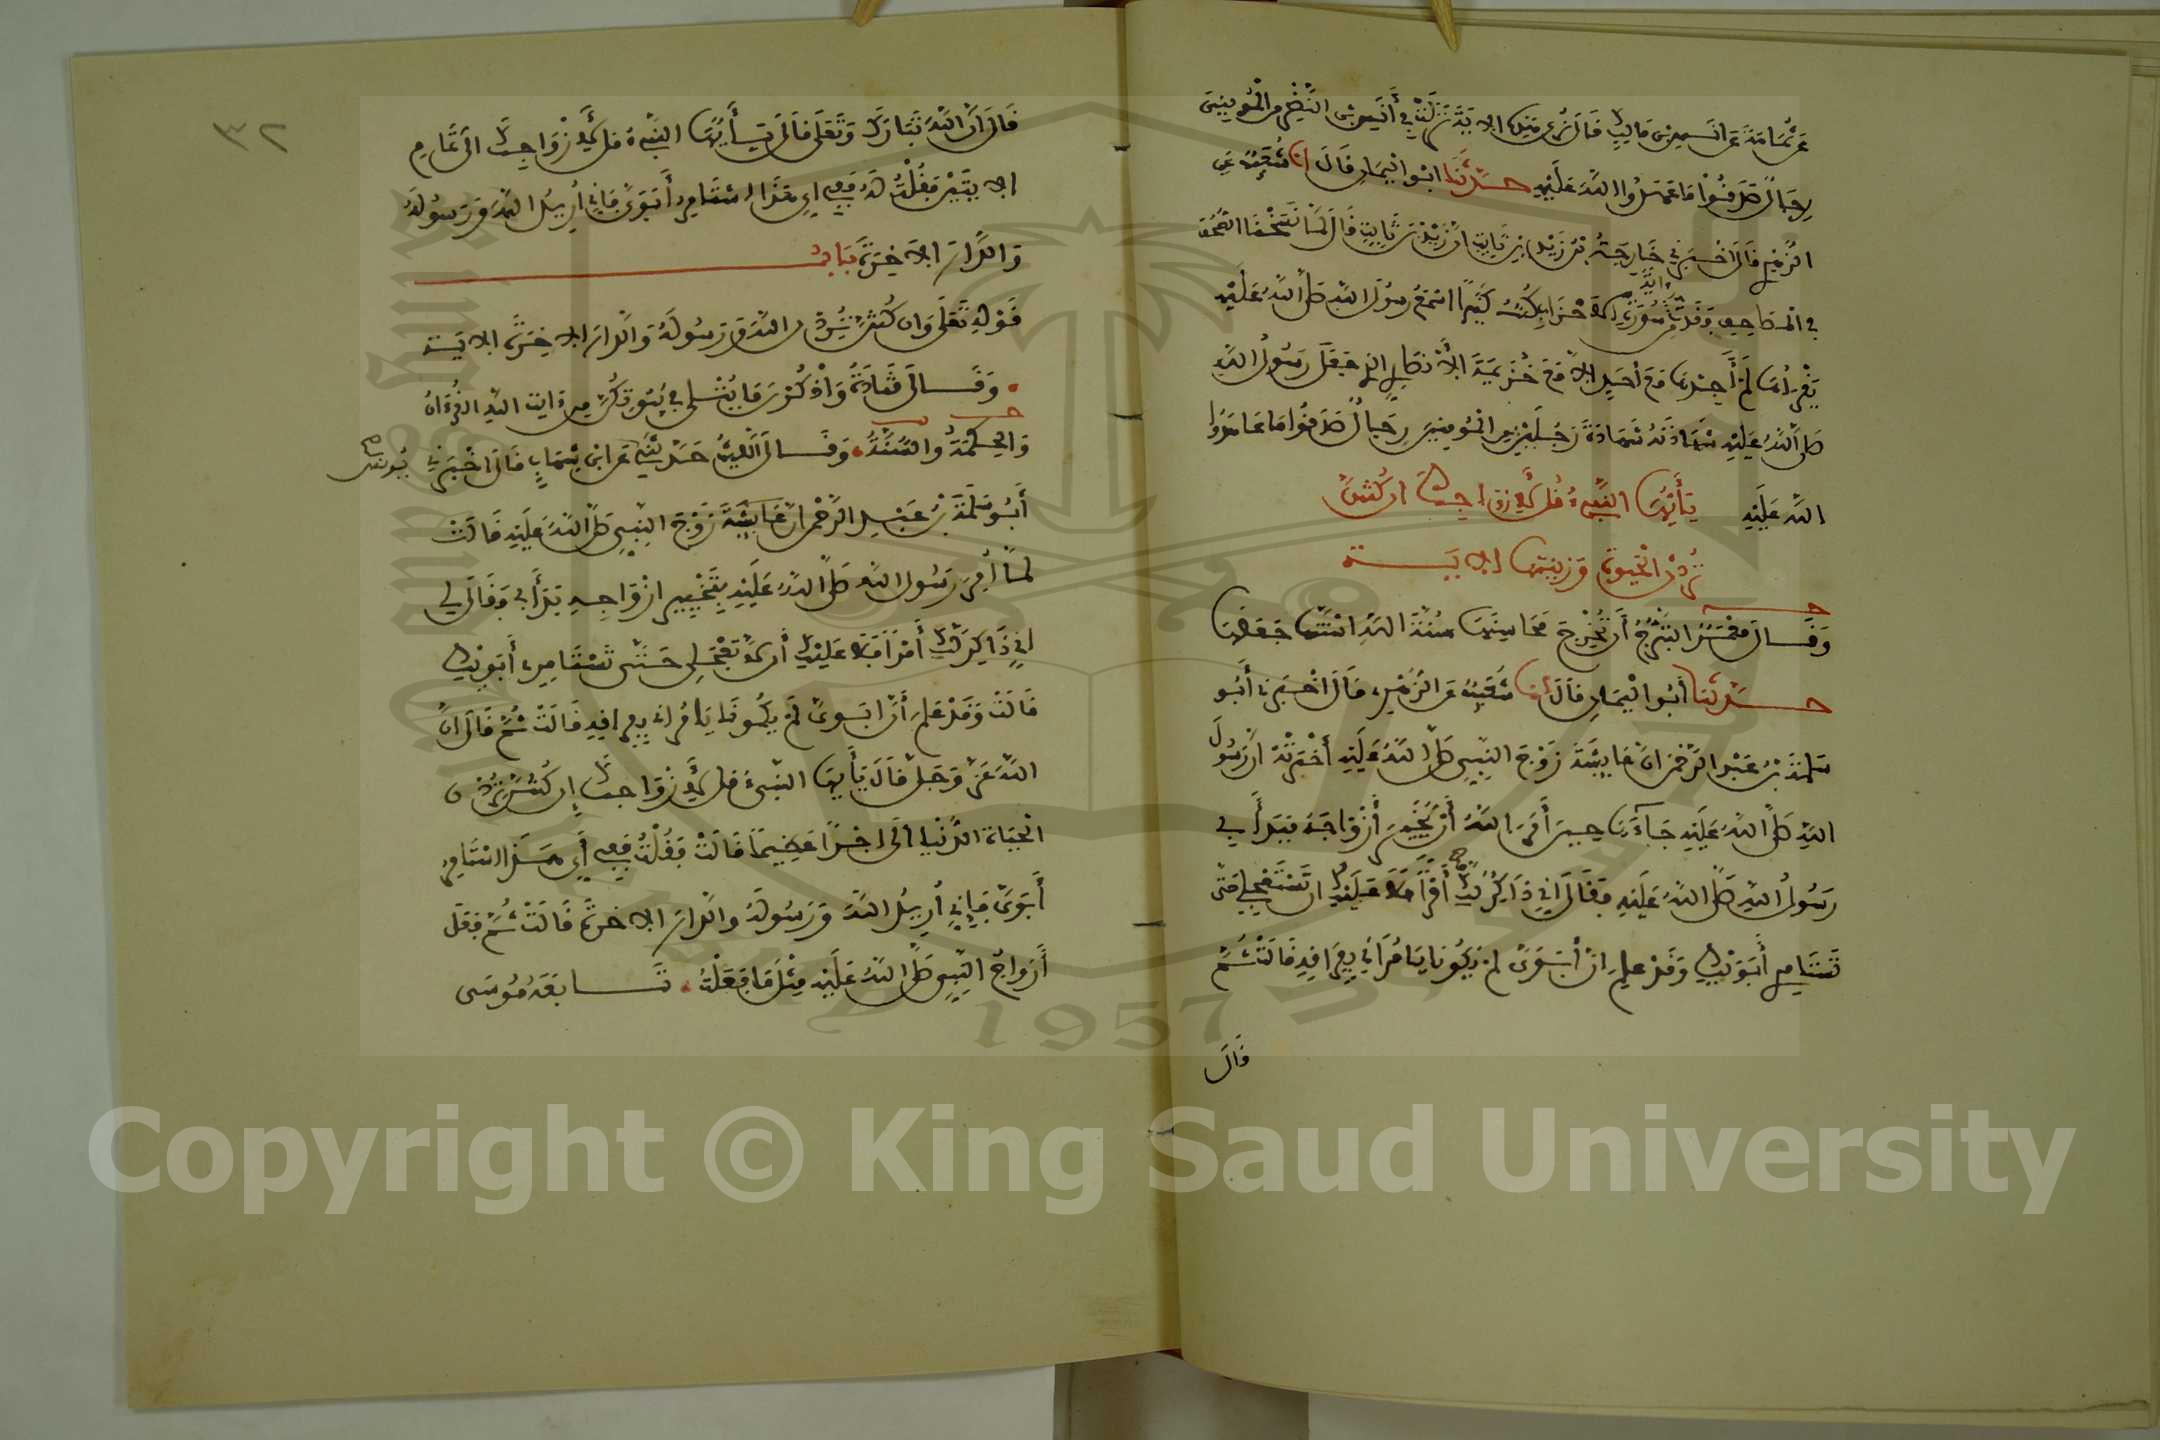 عن ثمامة عن انس بن مالك قال نرى هذه الاية نزلت في أنس بن النضر من المومنين
رجال صدقوا ما عهدوا الله عليه حدثنا ابو اليمان قال انا شعيب عن
الزهري قال اخبرني خارجة بن زيد بن ثابت ان زيد بن ثابت قال لما نسخنا الصحف
في المصاحف فقدت ءاية من سورة الاحزاب كنت كثيرا اسمع رسول الله صلى الله عليه
يقرأها لم أجدها مع احد الا مع خزيمة الانصاري الذي جعل رسول الله
صلى الله عليه شهادته شهادة رجلين من المومنين رجال صدقوا ما عاهدوا
الله عليه يأيها النبيء قل لأزواجك ان كنتن
تردن الحيوة وزينتها الاية
وقال معمر التبرج أن تخرج محاسنها سنة الله استنها جعلها
حدثنا أبو اليمان قال انا شعيب عن الزهري قال اخبرني أبو
سلمة بن عبد الرحمن ان عايشة زوج النبي صلى الله عليه أخبرته ان رسول
الله صلى الله عليه جاءها حين أمر الله أن يخير أزواجه فبدأ بي
رسول الله صلى الله عليه فقال اني ذاكر لك أمرا فلا عليك ان تستعجلي حتى
تستامري أبويك وقد علم ان أبوي لم يكونا يامراني بفراقه قالت ثم
قال
٣٢
قال ان الله تبارك وتعلى قال يأيها النبيء قل لأزواجك الى تمام
الايتين فقلت له ففي اي هذا استامر أبوي فاني أريد الله ورسوله
والدار الاخرة باب
قوله تعلى وان كنتن تردن الله ورسوله والدار الاخرة الاية
وقال قتادة واذكرن ما يتلى في بيوتكن من ءايت الله القرءان
والحكمة والسنة وقال الليث حدثني يونس عن ابن شهاب قال اخبرني
أبو سلمة بن عبد الرحمن ان عايشة زوج النبي صلى الله عليه قالت
لما أمر رسول الله صلى الله عليه بتخيير ازواجه بدأ بي فقال لي
اني ذاكر لك أمرا فلا عليك أن لا تعجلي حتى تستامري أبويك
قالت وقد علم أن ابوي لم يكونا يامراني بفراقه قالت ثم قال ان
الله عز وجل قال يأيها النبيء قل لأزواجك إن كنتن تردن
الحياة الدنيا الى اجرا عظيما قالت فقلت ففي أي هذا استامر
أبوي فإني أريد الله ورسوله والدار الاخرة قالت ثم فعل
أزواج النبي صلى الله عليه مثل ما فعلت تابعه موسى
Copyright © King Saud University
1957